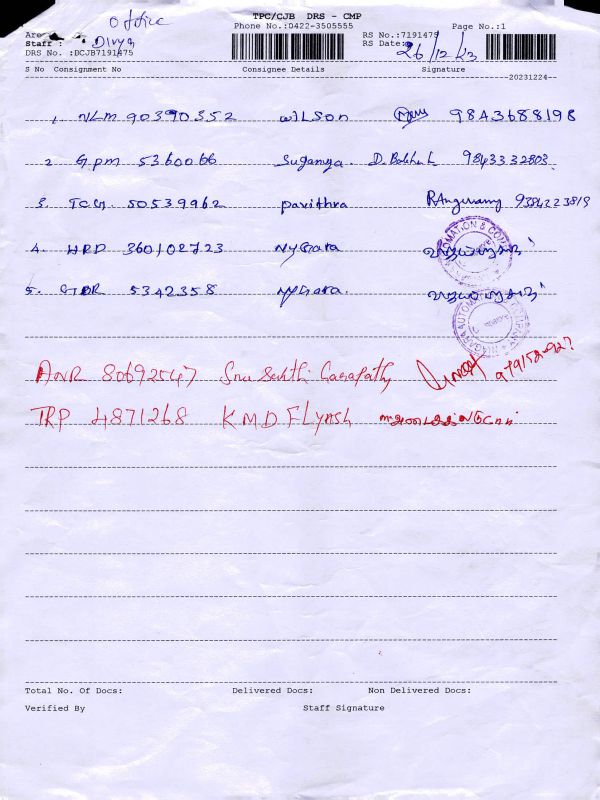 Office
TPC/CJB DRS - CMP
Phone No.:0422-3505555 Page No.:1
RS No.:7191475
Staff : Divya RS Date: 26/12/23
DRS No. :DCJB7191475
S No Consignment No Consignee Details Signature
20231224
1. NLM 90390352 WILSON 9843688198
2. GPM 5360066 Suganya. 9843332803
3. TCG. 50539962 Pavithra 9384223819
4. HRD 360102723 Nygara
5. 5342358 Nygara.
ANR 80692547 Sru Sakthi Ganapathy
TRP 4871268 KMD FLYASH
Total No. Of Docs: Delivered Docs: Non Delivered Docs:
Verified By Staff Signature